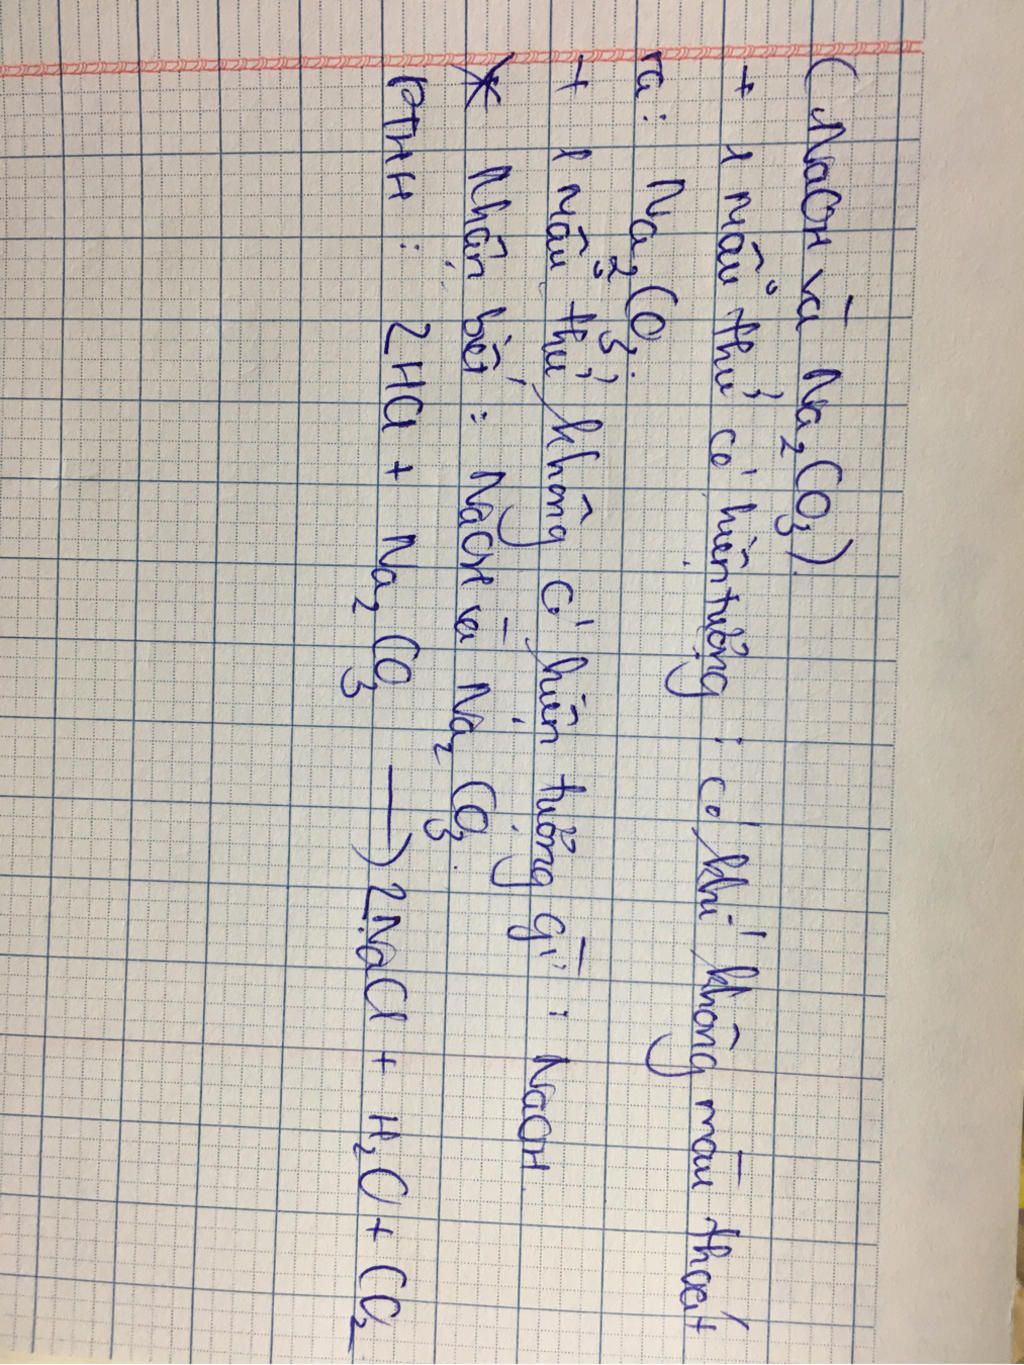 ( NaOH và Na2CO3).
+ 1 mẫu thử có hiện tượng : có khí không màu thoát
ra: Na2CO3.
+ 1 mẫu thử không có hiện tượng gì : NaOH.
* Nhận biết : NaOH và Na2CO3.
PTHH : 2HCl + Na2CO3 → 2NaCl + H2O + CO2